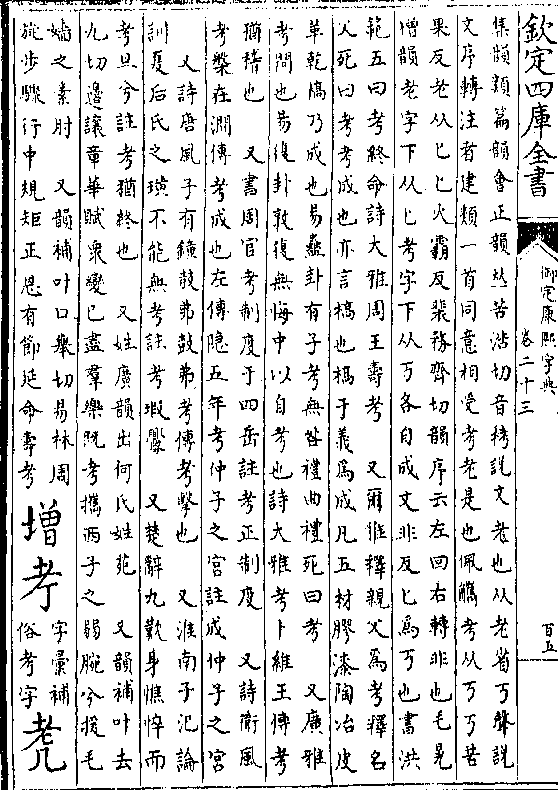 欽定四庫全書
御定康熙字典
卷二十三
百五
集韻類篇韻會正韻𠀤苦浩切音栲說文老也从老省丂聲說
文序轉注者建類一首同意相受考老是也佩觽考从丂丂苦
果反老从匕匕火霸反裴務齊切韻序云左回右轉非也毛晃
增韻老字下从匕考字下从丂各自成文非反匕爲丂也書洪
範五曰考終命詩大雅周王壽考 又爾雅釋親父爲考釋名
父死曰考考成也亦言槁也槁于義爲成凡五材膠漆陶冶皮
革乾槁乃成也易蠱卦有子考無咎禮曲禮死曰考 又廣雅
考問也易復卦敦復無悔中以自考也詩大雅考卜維王傳考
猶稽也 又書周官考制度于四岳註考正制度 又詩衛風
考槃在澗傳考成也左傳隱五年考仲子之宮註成仲子之宮
又詩唐風子有鐘鼓弗鼓弗考傳考擊也 又淮南子氾論
訓夏后氏之璜不能無考註考瑕釁 又楚辭九歎身憔悴而
考旦兮註考猶終也 又姓廣韻出何氏姓苑 又韻補叶去
九切邊讓章華賦衆變已盡羣樂旣考攜西子之弱腕兮援毛
嬙之素肘 又韻補叶口舉切易林周
旋步驟行中規矩正恩有節延命壽考
增考
字彙補
俗考字